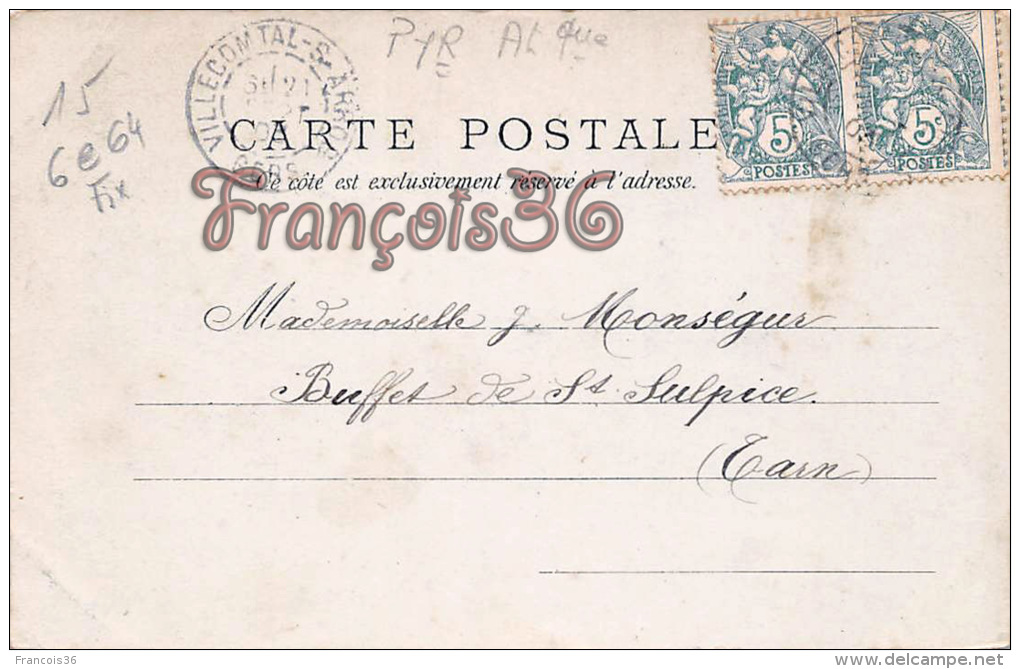 PYR Atque
15
6e 64
Fix
VILLECOMTAL-S-ARROS
GERS
CARTE POSTALE
Ce côté est exclusivement réservé à l'adresse.
5c
POSTES
5c
POSTES
François36
Mademoiselle J. Monségur
Buffet de St Sulpice.
(Tarn)
Francois36
www.delcampe.net